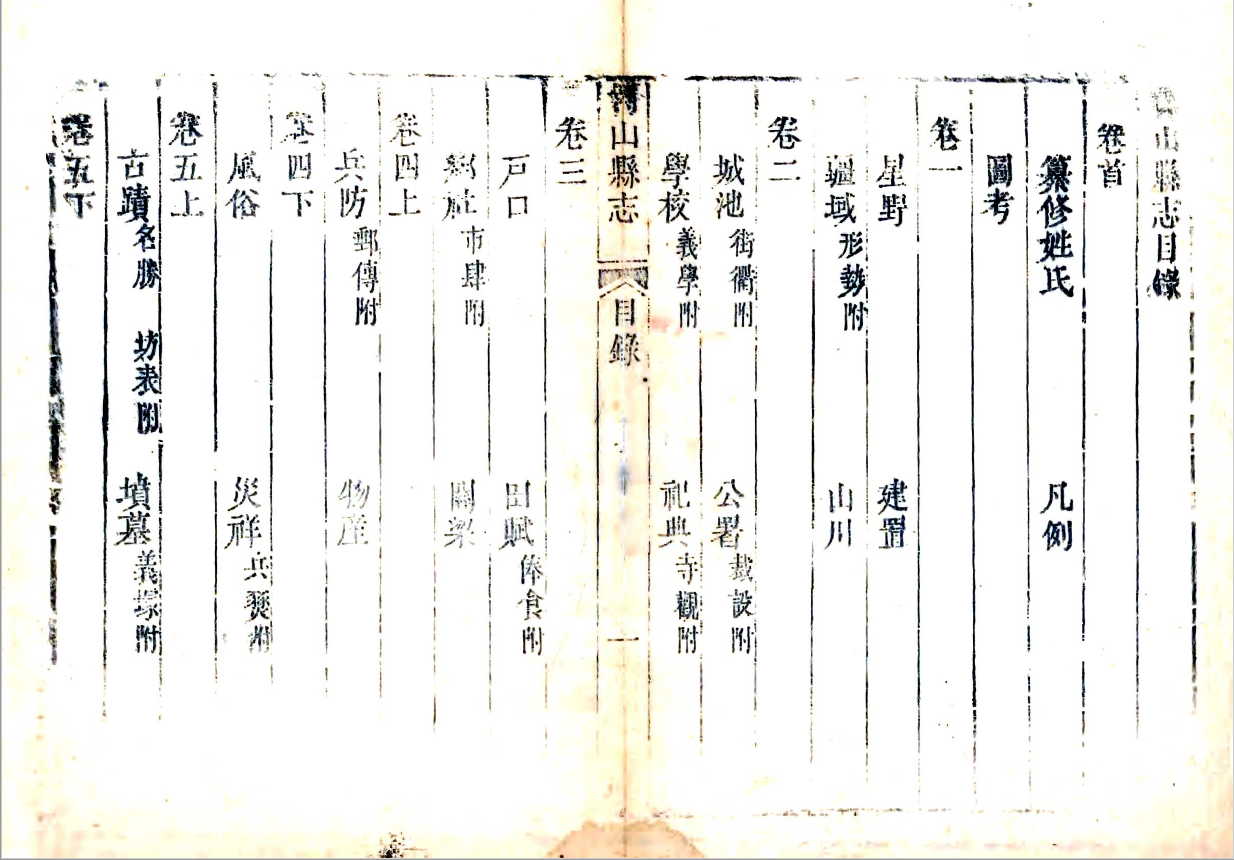 山縣志目錄
卷首
纂修姓氏 凡例
圖考
卷一
星野 建置
疆域形勢附 山川
卷二
城池街衢附 公署裁設附
學校義學附 祀典寺觀附
山縣志 目錄 一
卷三
戸口 田賦俸食附
鄉社市肆附 關梁
卷四上
兵防郵傳附 物産
卷四下
風俗 災祥兵燹附
卷五上
古蹟名勝 坊表附 墳墓義塚附
卷五下